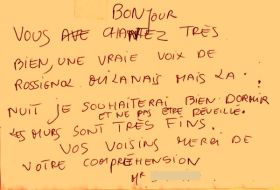 BONJOUR
VOUS AVE CHANTEZ TRÈS
BIEN, UNE VRAIE VOIX DE
ROSSIGNOL MILANAIS MAIS LA
NUIT JE SOUHAITERAI BIEN DORMIR
ET NE PAS ETRE REVEILLE.
LES MURS SONT TRÈS FINS.
VOS VOISINS MERCI DE
VOTRE COMPRÉHENSION
MR